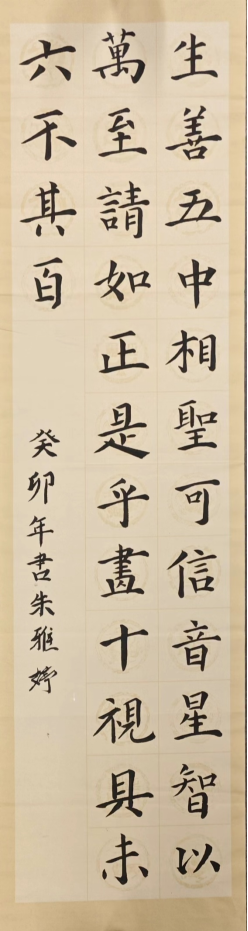 生善五中相聖可信音星智以
萬至請如正是乎畫十視具未
六不其百
癸卯年書朱雅婷